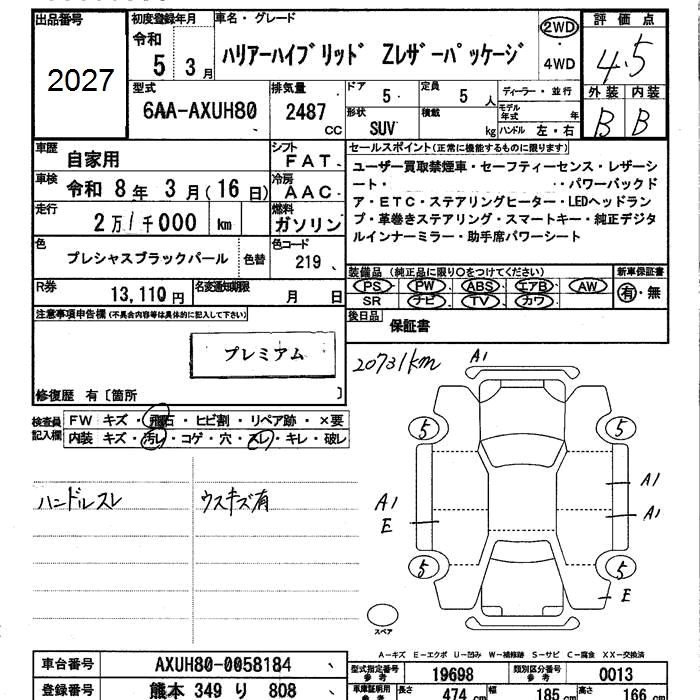 出品番号 初度登録年月 車名・グレード 評価点
2027
令和 5 3月
ハリアーハイブリッド Zレザーパッケージ
2WD ・ 4WD
4.5
型式 6AA-AXUH80
排気量 2487 cc
ドア 5 定員 5人
形状 SUV 積載 kg
ディーラー・並行
モデル年式 年
ハンドル 左・右
外装 内装
B B
車歴 自家用
シフト FAT
車検 令和 8年 3月(16日)
冷房 AAC
走行 2万1千000 km
燃料 ガソリン
色 プレシャスブラックパール 色替
色コード 219
R券 13,110円
名変通知期限 月 日
セールスポイント(正常に機能するものに限ります)
ユーザー買取禁煙車・セーフティーセンス・レザーシ
ート・ ・・パワーバックド
ア・ETC・ステアリングヒーター・LEDヘッドラン
プ・革巻きステアリング・スマートキー・純正デジタ
ルインナーミラー・助手席パワーシート
装備品(純正品に限り○をつけてください) 新車保証書
PS・PW・ABS・エアB・AW 有・無
SR ナビ・TV・カワ
後日品 保証書
注意事項申告欄(不具合内容等は具体的に記入して下さい)
プレミアム
修復歴 有〔箇所 〕
20731km
検査員記入欄
FW キズ・飛石・ヒビ割・リペア跡・×要
内装 キズ・汚レ・コゲ・穴・スレ・キレ・破レ
ハンドルスレ
ウスキズ有
A1
5 5
A1
A1 A1
E
5 5
E
スペア
A-キズ E-エクボ U-凹み W-補修跡 S-サビ C-腐食 XX-交換済
車台番号 AXUH80-0058184
型式指定番号 参考 19698 類別区分番号 参考 0013
登録番号 熊本 349 り 808
車庫証明用 参考 長さ 474 cm 幅 185 cm 高さ 166 cm